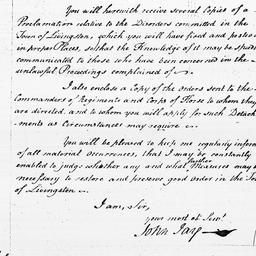 You will herewith receive several Copies of a
Proclamation relative to the Disorders committed in the
Town of Livingston, which you will have fixed and posted
in proper Places, so that the Knowledge of it may be speedily
communicated to those who have been concerned in the
unlawful Proceedings complained of
I also enclose a Copy of the orders sent to the
Commanders of Regiments and Corps of Horse to whom they
are directed, and to whom you will apply for such Detach
ments as Circumstances may require
You will be pleased to keep me regularly inform
of all material occurrences, that I may be constantly
enabled to judge whether any and what further Measures may
necessary to restore and preserve good order in the Town
of Livingston
I am, Sir,
your most ob Servt
John Jay